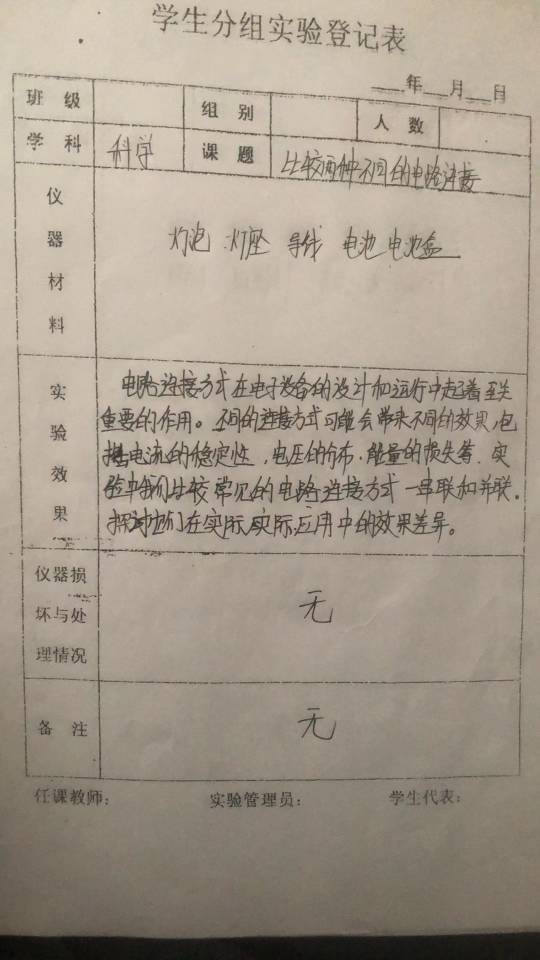 学生分组实验登记表
年 月 日
班级 组别 人数
学科 科学 课题 比较两种不同的电路连接
仪器材料 灯泡 灯座 导线 电池 电池盒
实验效果
电路连接方式在电子设备的设计和运行中起着至关
重要的作用。不同的连接方式可能会带来不同的效果,包
括电流的稳定性,电压的分布,能量的损失等。实
验中我们比较常见的电路连接方式一串联和并联。
探讨他们在实际,实际,应用中的效果差异。
仪器损坏与处理情况 无
备注 无
任课教师: 实验管理员: 学生代表: